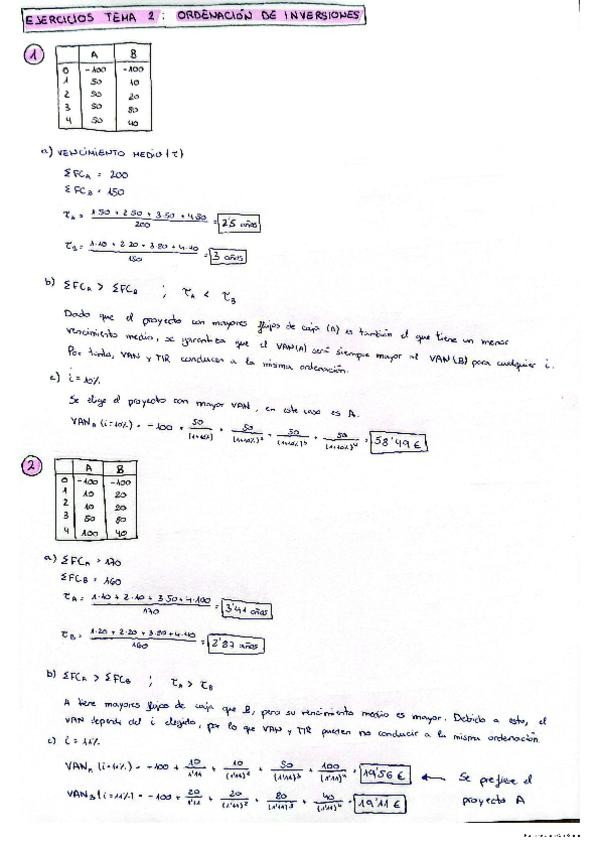 EJERCICIOS TEMA 2: ORDENACIÓN DE INVERSIONES
1
A B
0 -100 -100
1 50 10
2 50 20
3 50 80
4 50 40
a) VENCIMIENTO MEDIO (τ)
ΣFC_A = 200
ΣFC_B = 150
τ_A = (1·50 + 2·50 + 3·50 + 4·50)/200 = 2'5 años
τ_B = (1·10 + 2·20 + 3·80 + 4·40)/150 = 3 años
b) ΣFC_A > ΣFC_B ; τ_A < τ_B
Dado que el proyecto con mayores flujos de caja (A) es también el que tiene un menor
vencimiento medio, se garantiza que el VAN(A) será siempre mayor al VAN(B) para cualquier i.
Por tanto, VAN y TIR conducen a la misma ordenación.
c) i = 10%
Se elige el proyecto con mayor VAN, en este caso es A.
VAN_A (i=10%) = -100 + 50/(1+10%) + 50/(1+10%)² + 50/(1+10%)³ + 50/(1+10%)⁴ = 58'49 €
2
A B
0 -100 -100
1 10 20
2 10 20
3 50 80
4 100 40
a) ΣFC_A = 170
ΣFC_B = 160
τ_A = (1·10 + 2·10 + 3·50 + 4·100)/170 = 3'41 años
τ_B = (1·20 + 2·20 + 3·80 + 4·40)/160 = 2'87 años
b) ΣFC_A > ΣFC_B ; τ_A > τ_B
A tiene mayores flujos de caja que B, pero su vencimiento medio es mayor. Debido a esto, el
VAN depende del i elegido, por lo que VAN y TIR pueden no conducir a la misma ordenación.
c) i = 11%
VAN_A (i=11%) = -100 + 10/1'11 + 10/(1'11)² + 50/(1'11)³ + 100/(1'11)⁴ = 19'56 € ← Se prefiere el
VAN_B (i=11%) = -100 + 20/1'11 + 20/(1'11)² + 80/(1'11)³ + 40/(1'11)⁴ = 19'11 € proyecto A